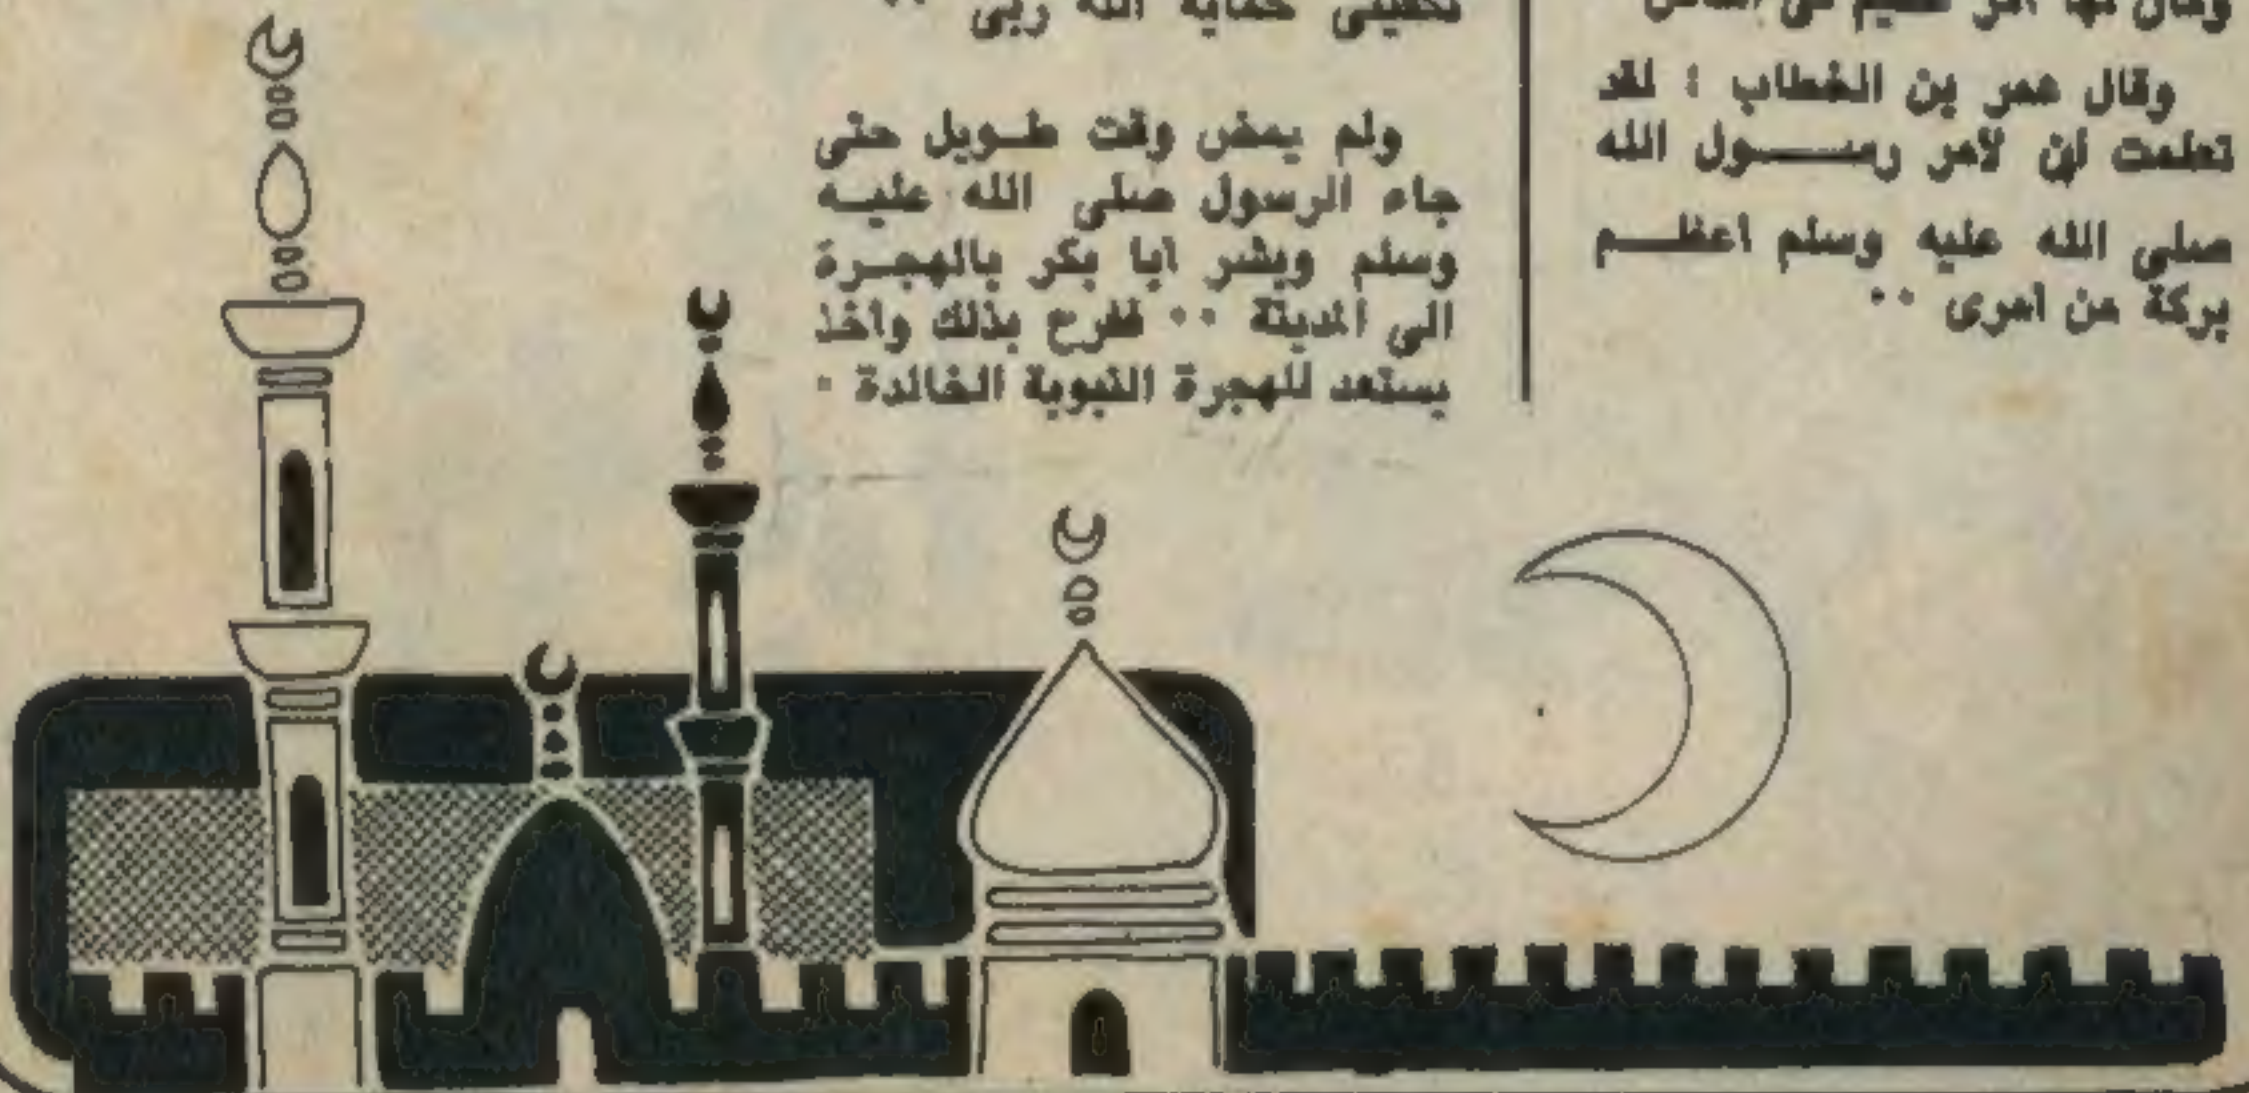 وقال عمر بن الخطاب : لقد
تعلمت أن لأمر رســـــول الله
صلى الله عليه وسلم اعظـــم
بركة من أمرى ٠٠
ربى ٠٠
ولم يمض وقت طـويل حتى
جاء الرسول صلى الله عليـه
وسلم ويشر أبا بكر بالهجـرة
الى المدينة ٠٠ ففرح بذلك واخذ
يستعد للهجرة النبوية الخالدة ٠